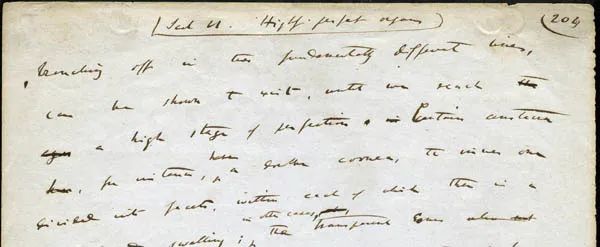 Highly perfect organs 204
branching off in two fundamentally different lines,
can be shown to exist, until we reach the
a high stage of perfection. in Certain crustacea
for instance, have a double cornea, the inner one
divided into facets, within each of which there is a
in other cases,
swelling; the transparent cones